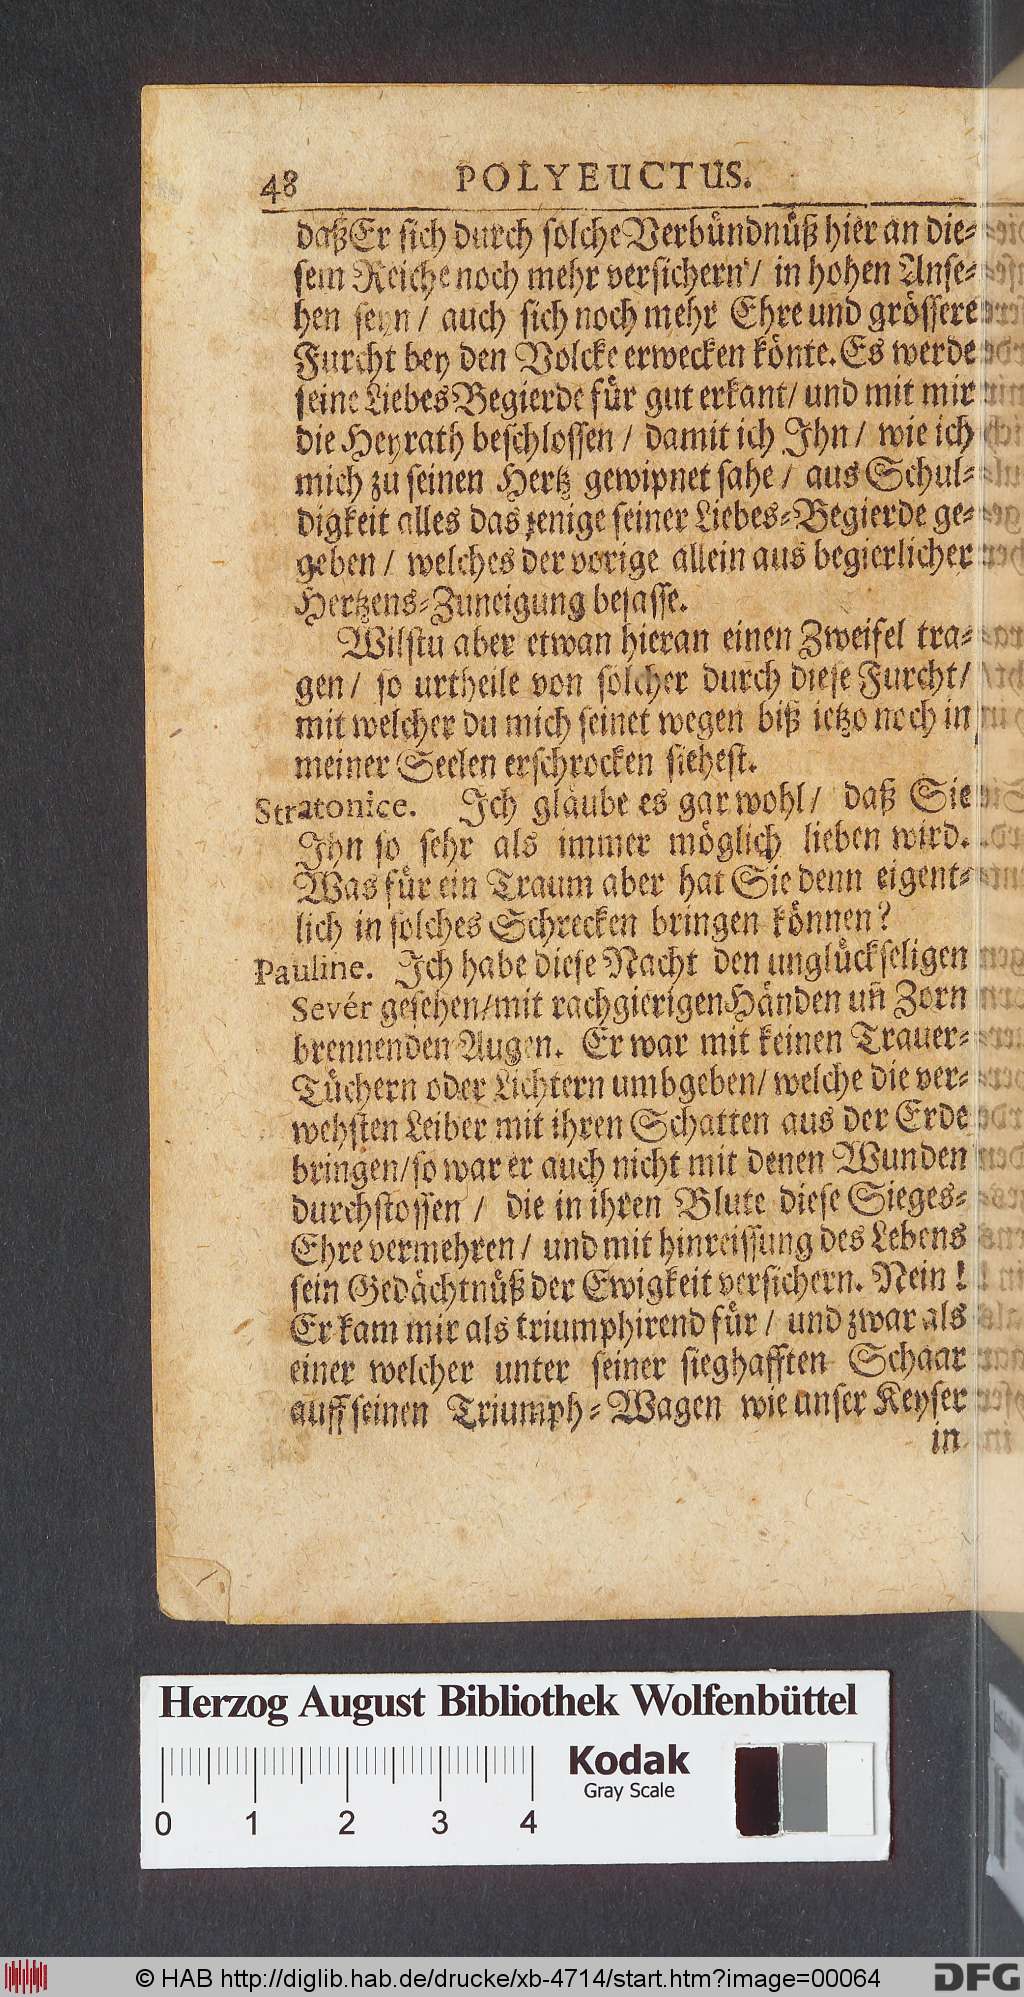 48 POLYEUCTUS.
daß Er sich durch solche Verbündnüß hier an die-
sem Reiche noch mehr versichern / in hohen Anse-
hen seyn / auch sich noch mehr Ehre und grössere
Furcht bey den Volcke erwecken könte. Es werde
seine Liebes Begierde für gut erkant / und mit mir
die Heyrath beschlossen / damit ich Ihn / wie ich
mich zu seinen Hertz gewipnet sahe / aus Schul-
digkeit alles das jenige seiner Liebes-Begierde ge-
geben / welches der vorige allein aus begierlicher
Hertzens-Zuneigung besasse.
Wilstu aber etwan hieran einen Zweifel tra-
gen / so urtheile von solcher durch diese Furcht /
mit welcher du mich seinet wegen biß ietzo noch in
meiner Seelen erschrocken siehest.
Stratonice. Ich gläube es gar wohl / daß Sie
Ihn so sehr als immer möglich lieben wird.
Was für ein Traum aber hat Sie denn eigent-
lich in solches Schrecken bringen können?
Pauline. Ich habe diese Nacht den unglückseligen
Sevér gesehen / mit rachgierigen Händen uñ Zorn
brennenden Augen. Er war mit keinen Trauer-
Tüchern oder Lichtern umbgeben / welche die ver-
wehsten Leiber mit ihren Schatten aus der Erde
bringen / so war er auch nicht mit denen Wunden
durchstossen / die in ihren Blute diese Sieges-
Ehre vermehren / und mit hinreissung des Lebens
sein Gedächtnüß der Ewigkeit versichern. Nein !
Er kam mir als triumphirend für / und zwar als
einer welcher unter seiner sieghafften Schaar
auff seinen Triumph-Wagen wie unser Keyser
in
Herzog August Bibliothek Wolfenbüttel
Kodak
Gray Scale
0 1 2 3 4
© HAB http://diglib.hab.de/drucke/xb-4714/start.htm?image=00064
DFG